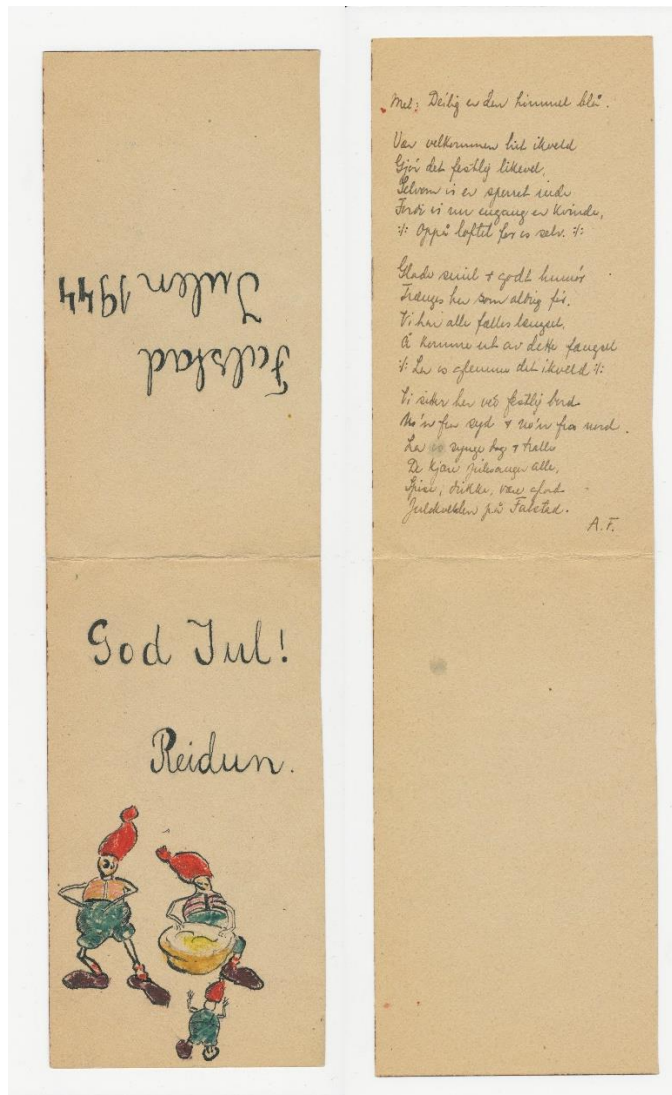 Falstad
Julen 1944
God Jul!
Reidun.
Mel: Deilig er den himmel blå.
Vær velkommen hit ikveld
Gjør det festlig likevel,
Selvom vi er sperret inde
Fordi vi nu engang er kvinde,
:/: Oppå loftet for os selv. :/:
Glade smil + godt humør
Trænges her som aldrig før.
Vi har alle fælles længsel,
Å komme ut av dette fængsel
:/: La os glemme det ikveld :/:
Vi sitter her ved festlig bord
No'n fra syd + no'n fra nord.
La os synge høg + tralle
De kjære julesanger alle,
Spise, drikke, være glad
Julekvelden på Falstad.
A.F.